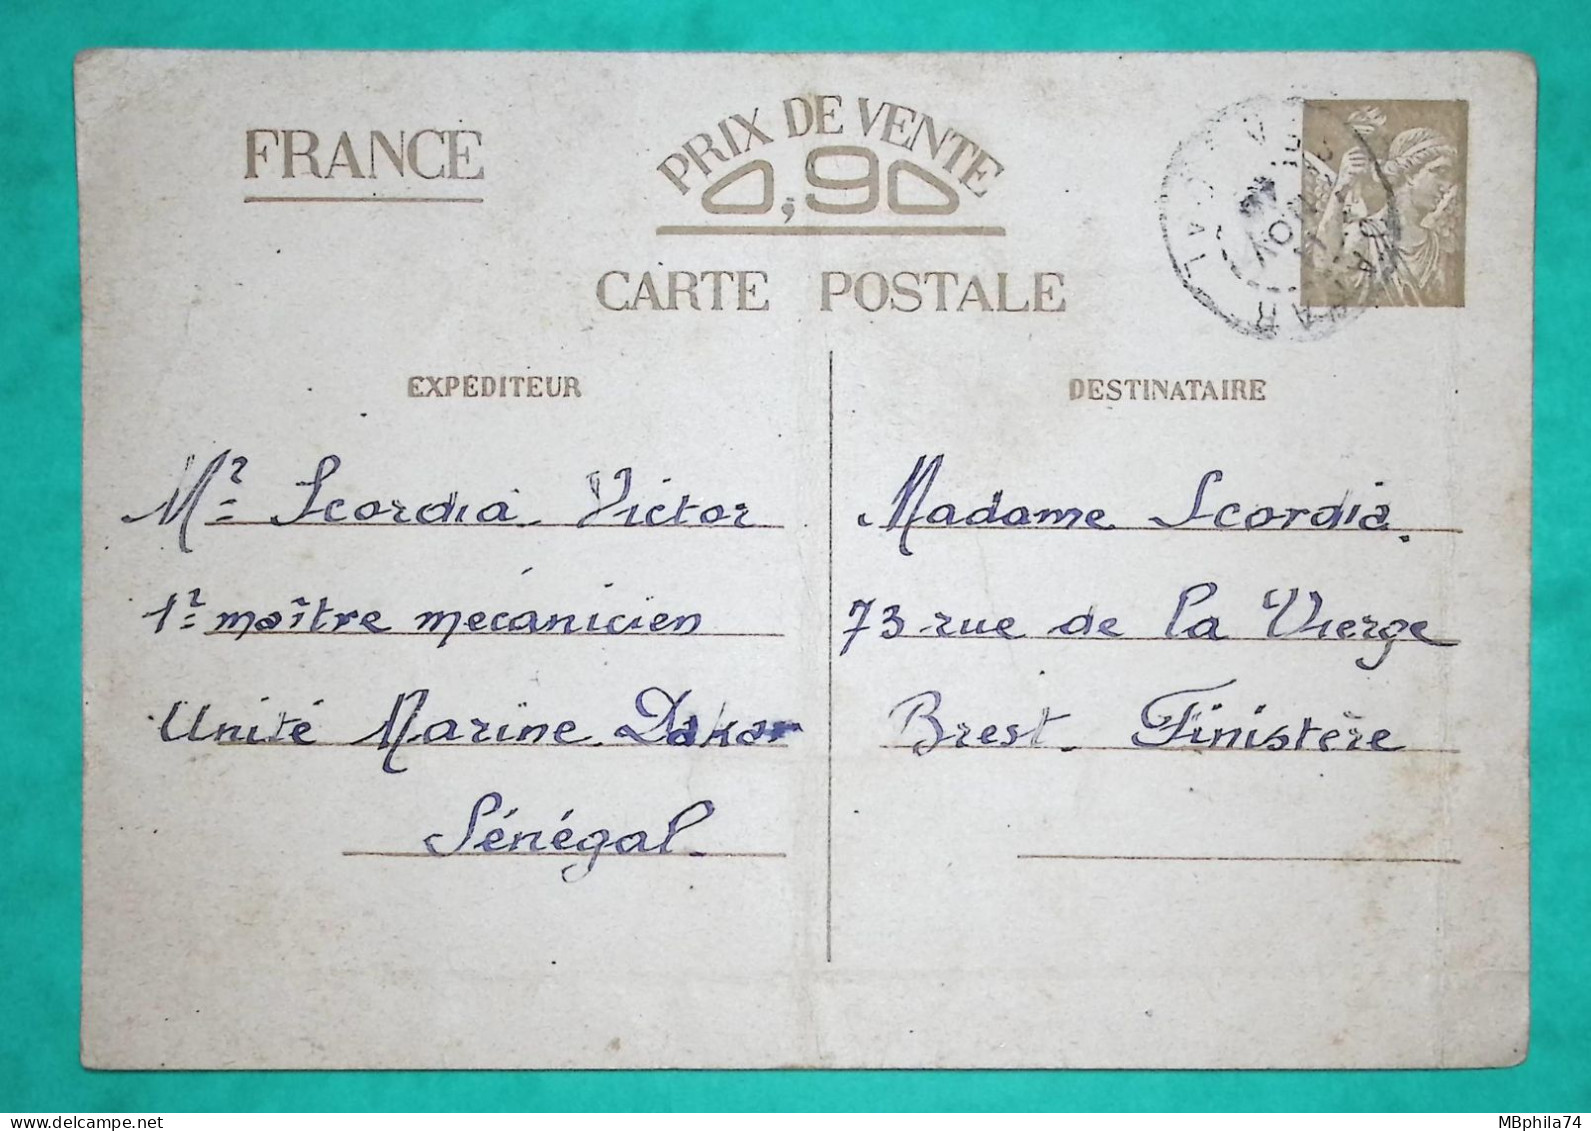 FRANCE
PRIX DE VENTE
0,90
CARTE POSTALE
EXPÉDITEUR
Mr Scordia Victor
1r maître mécanicien
Unité Marine Dakar
Sénégal
DESTINATAIRE
Madame Scordia
73 rue de la Vierge
Brest. Finistère
MBphila74